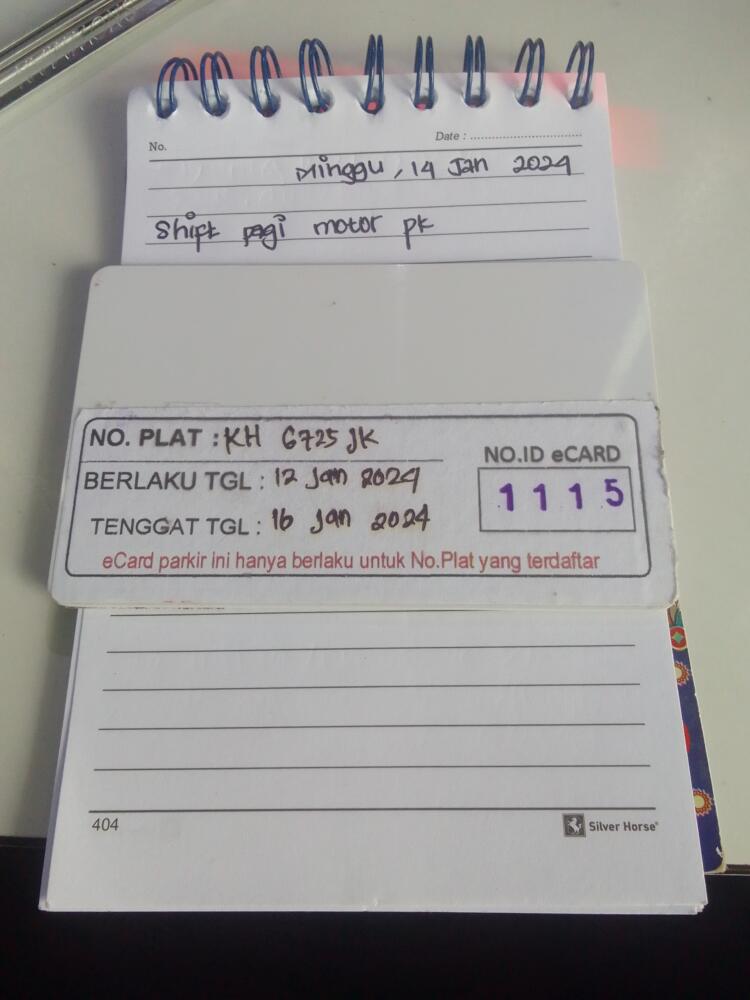 No.
Date :
Minggu, 14 Jan 2024
Shift pagi motor pk
NO. PLAT : KH 6725 JK
BERLAKU TGL : 12 Jan 2024
TENGGAT TGL : 16 Jan 2024
NO.ID eCARD
1115
eCard parkir ini hanya berlaku untuk No.Plat yang terdaftar
404
Silver Horse